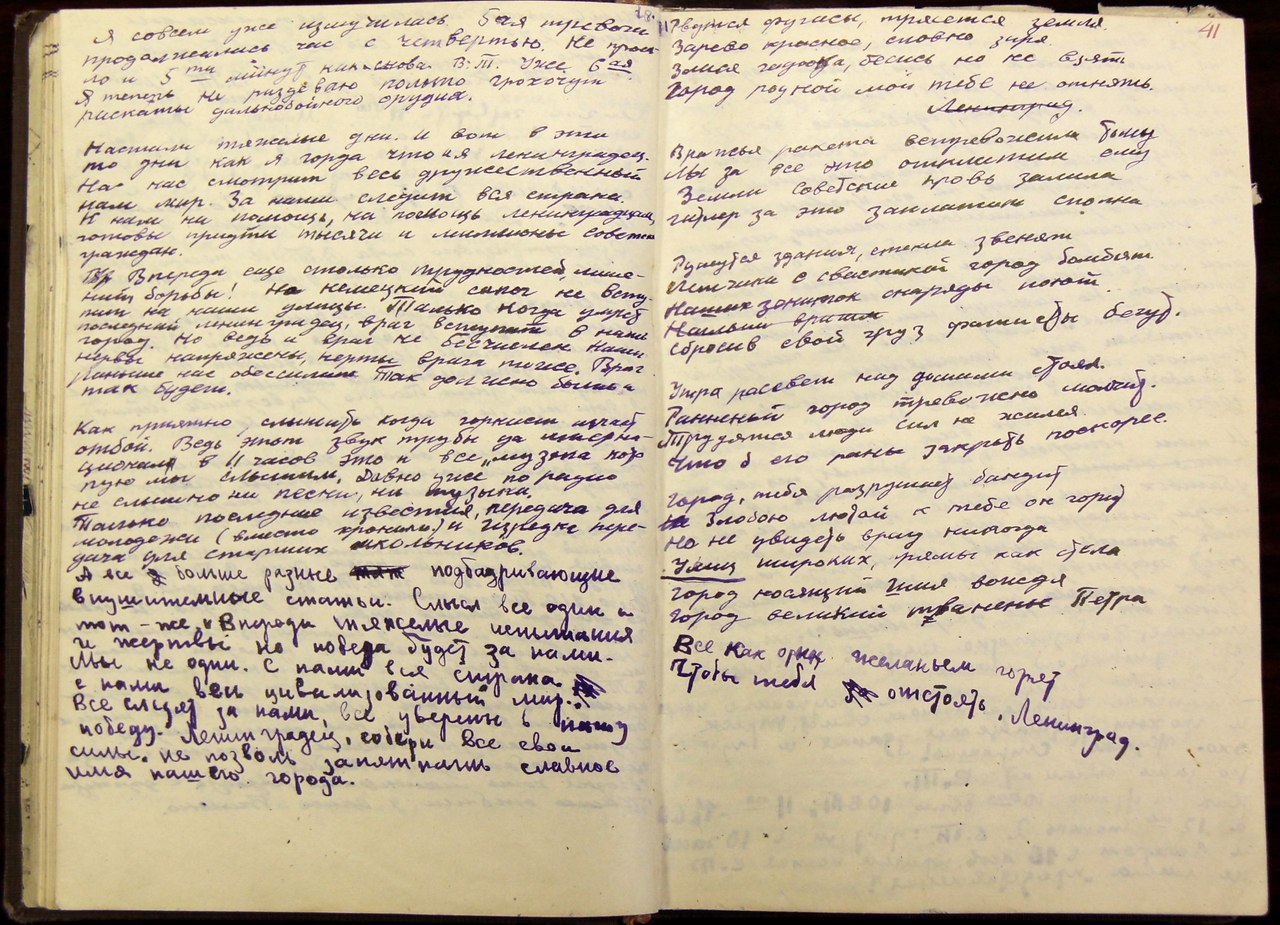 28.
Я совсем уже измучилась 5ая тревога
продолжалась час с четвертью. Не прош-
ло и 5ти минут как снова В.Т. Уже 6ая
Я теперь не раздеваю польто грохочут
раскаты дальнобойного орудия.
Настали тяжелые дни. И вот в эти
то дни как я горда что я ленинградец.
На нас смотрит весь дружественный
нам мир. За нами следит вся страна.
К нам на помощь, на помощь ленинградцам,
готовы придти тысячи и миллионы советск
граждан.
Впереди еще столько трудностей, лише-
ний борьбы! Но немецкий сапог не всту-
пит на наши улицы Только когда умрет
последний ленинградец, враг вступит в наш
город. Но ведь и враг не бесчислен. Наши
нервы напряжены, нервы врага тоже. Враг
раньше нас обессилит Так должно быть и
так будет.
Как приятно, слышить когда горнист играет
отбой. Ведь этот звук трубы да интерна-
ционал в 11 часов это и все „музыка кото
рую мы слышим. Давно уже по радио
не слышно ни песни, ни музыки.
Только последние известия, передача для
молодежи (вместо хроники) и изредка пере-
дача для старших школьников.
А все больше разные подбадривающие
внушителмные статьи. Смысл все один и
тот-же. Впереди тяжелые испытания
и жертвы но победа будет за нами.
Мы не одни. С нами вся страна.
с нами весь цивилизованный мир.
Все следят за нами, все уверены в нашу
победу. Ленинградец, собери все свои
силы. не позволь запятнать славное
имя нашего города.
41
Рвутся фугасы, трясется земля
Зарево красное, словно заря
Злися гадюка, бесись но не взять
Город родной мой тебе не отнять.
Ленинград.
Вражья ракета встревожила тьму
Мы за все это отплатим ему
Земли советские кровь залила
гитлер за это заплатит сполна
Рушутся здания, стекла звенят
Летчики с свастикой город бомбят
Наших зениток снаряды поют.
Сбросив свой груз фашисты бегут.
Утра рассвет над домами стоял.
Раненный город тревожно молчит.
Трудятся люди сил не жалея
Что б его раны закрыть поскорее.
Город, тебя разрушает бандит
Злобою лютой к тебе он горит
Но не увидеть врагу никогда
Улиц широких, прямы как стела
Город носящий имя вождя
Город великий творенье Петра
Все как один желаньем горят
Чтобы тебя отстоять, Ленинград.